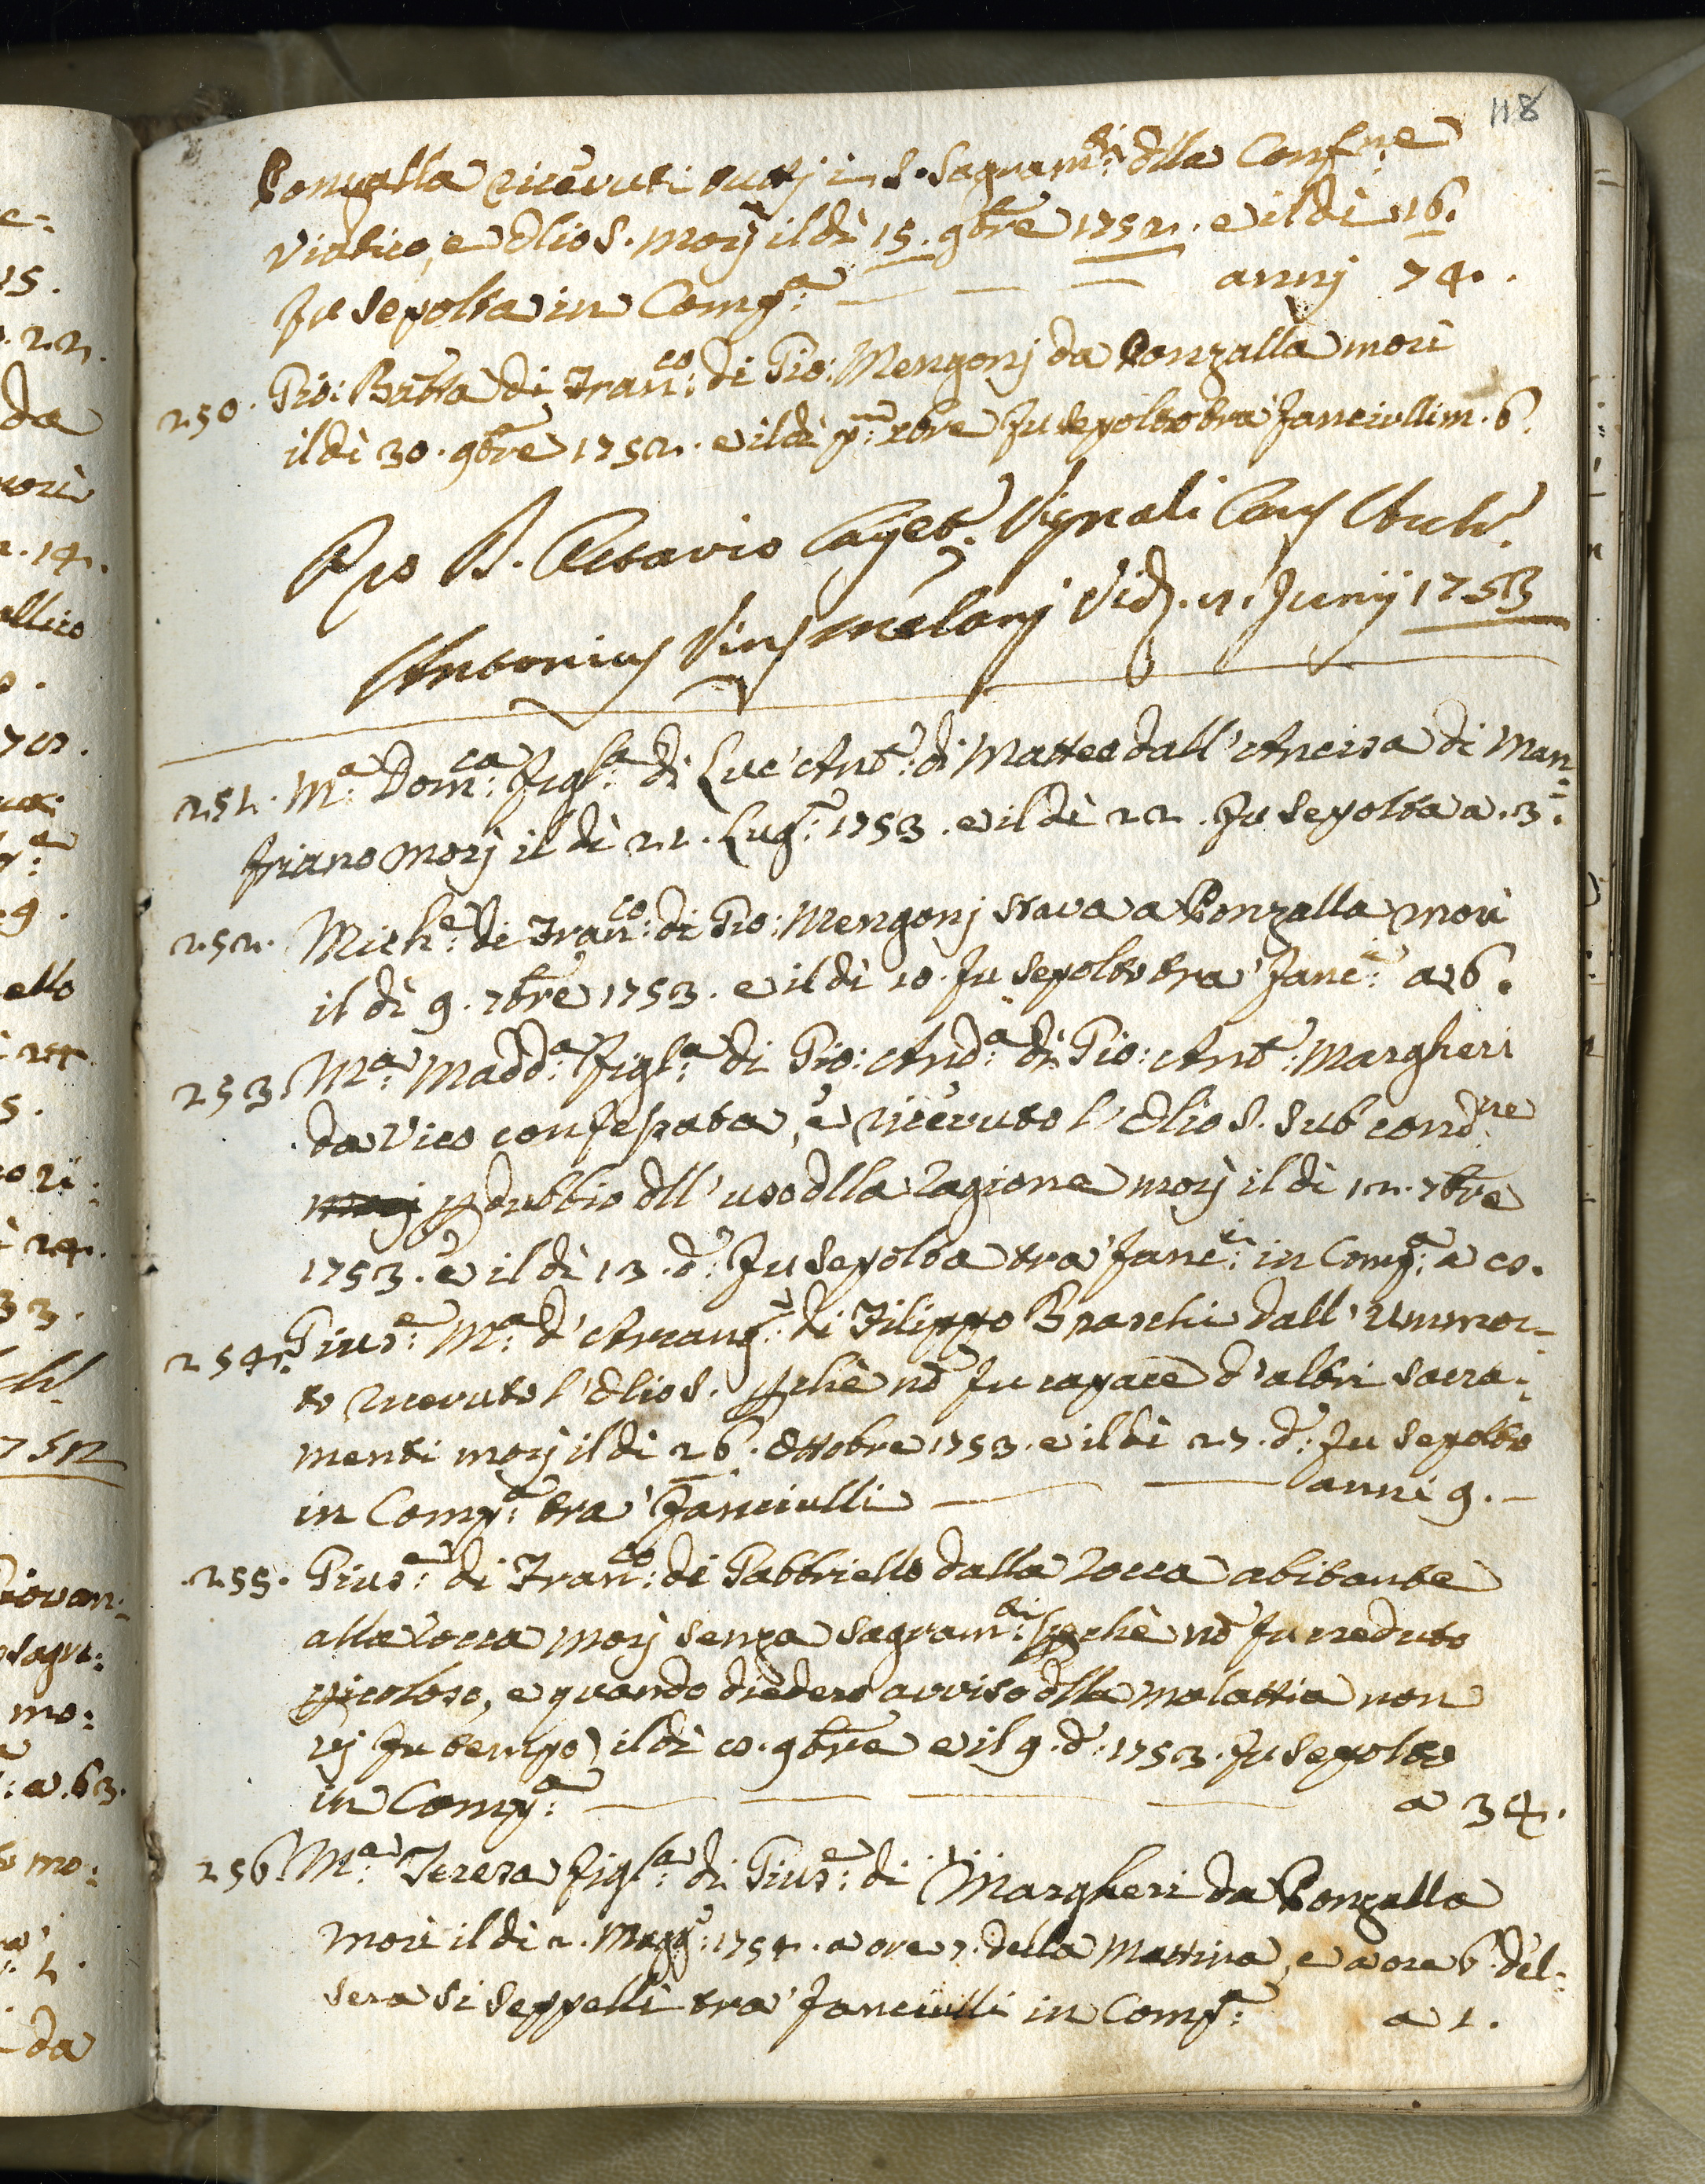 118
Ronzalla ricevuti tutti i S. Sagram:ti dlla Conf:ne
Viatico, e Olio S. morj il dì 15. 9bre 1752. e il dì 16.
fu sepolta in Comp:a — — — annj 74.
250. Gio: Batta di Fran:co di Gio: Mengonj da Ronzalla morì
il dì 30. 9bre 1752. e il dì p:mo xbre fu sepolto tra' fanciulli m. 6.
Pro D. Octavio Cajet. Vignali
Antonius Melanj Vid. 2. Junij 1753
251. M:a Dom:ca figl:a di Luc' Ant:o di Matteo dall' Ancisa di Man=
friano morj il dì 21. Lug:o 1753. e il dì 22. fu sepolta a. 3.
252. Mich:e di Fran:co di Gio: Mengonj stava a Ronzalla morì
il dì 9. 7bre 1753. e il dì 10. fu sepolto tra' fanc:i a 6.
253. M:a Madd:a figl:a di Gio: And:a di Gio: Ant:o Margheri
da Vico confessata, e ricevuto l'Olio S. sub cond:ne
morj p dubbio dll' uso dlla ragione morj il dì 12. 7bre
1753. e il dì 13. d:o fu sepolta tra' fanc:i in Comp:a a 10.
254. Gius:e M:a d' Arcang:o di Filippo Braschi dall' Ummor=
to ricevuto l'Olio S. pchè nō fu capace d'altri sacra=
menti morj il dì 26. Ottobre 1753. e il dì 27. d:o fu sepolto
in Comp:a tra' fanciulli — — anni 9. —
255. Gius:e di Fran:co di Gabbriello dalla Rocca abitante
alla Rocca morj senza sagram:ti (pchè nō fu creduto
picoloso, e quando diedero avviso dlla malattia non
vj fu tempo) il dì 10. 9bre e il 9. d:o 1753. fu sepolto
in Comp:a — — — — a 34.
256. M:a Teresa figl:a di Gius:e di Margheri da Ronzalla
morì il dì 2. Magg:o 1754. a ore 7. della Mattina, e a ore 6. del=
sera si seppellì tra' fanciulli in Comp:a a 1.